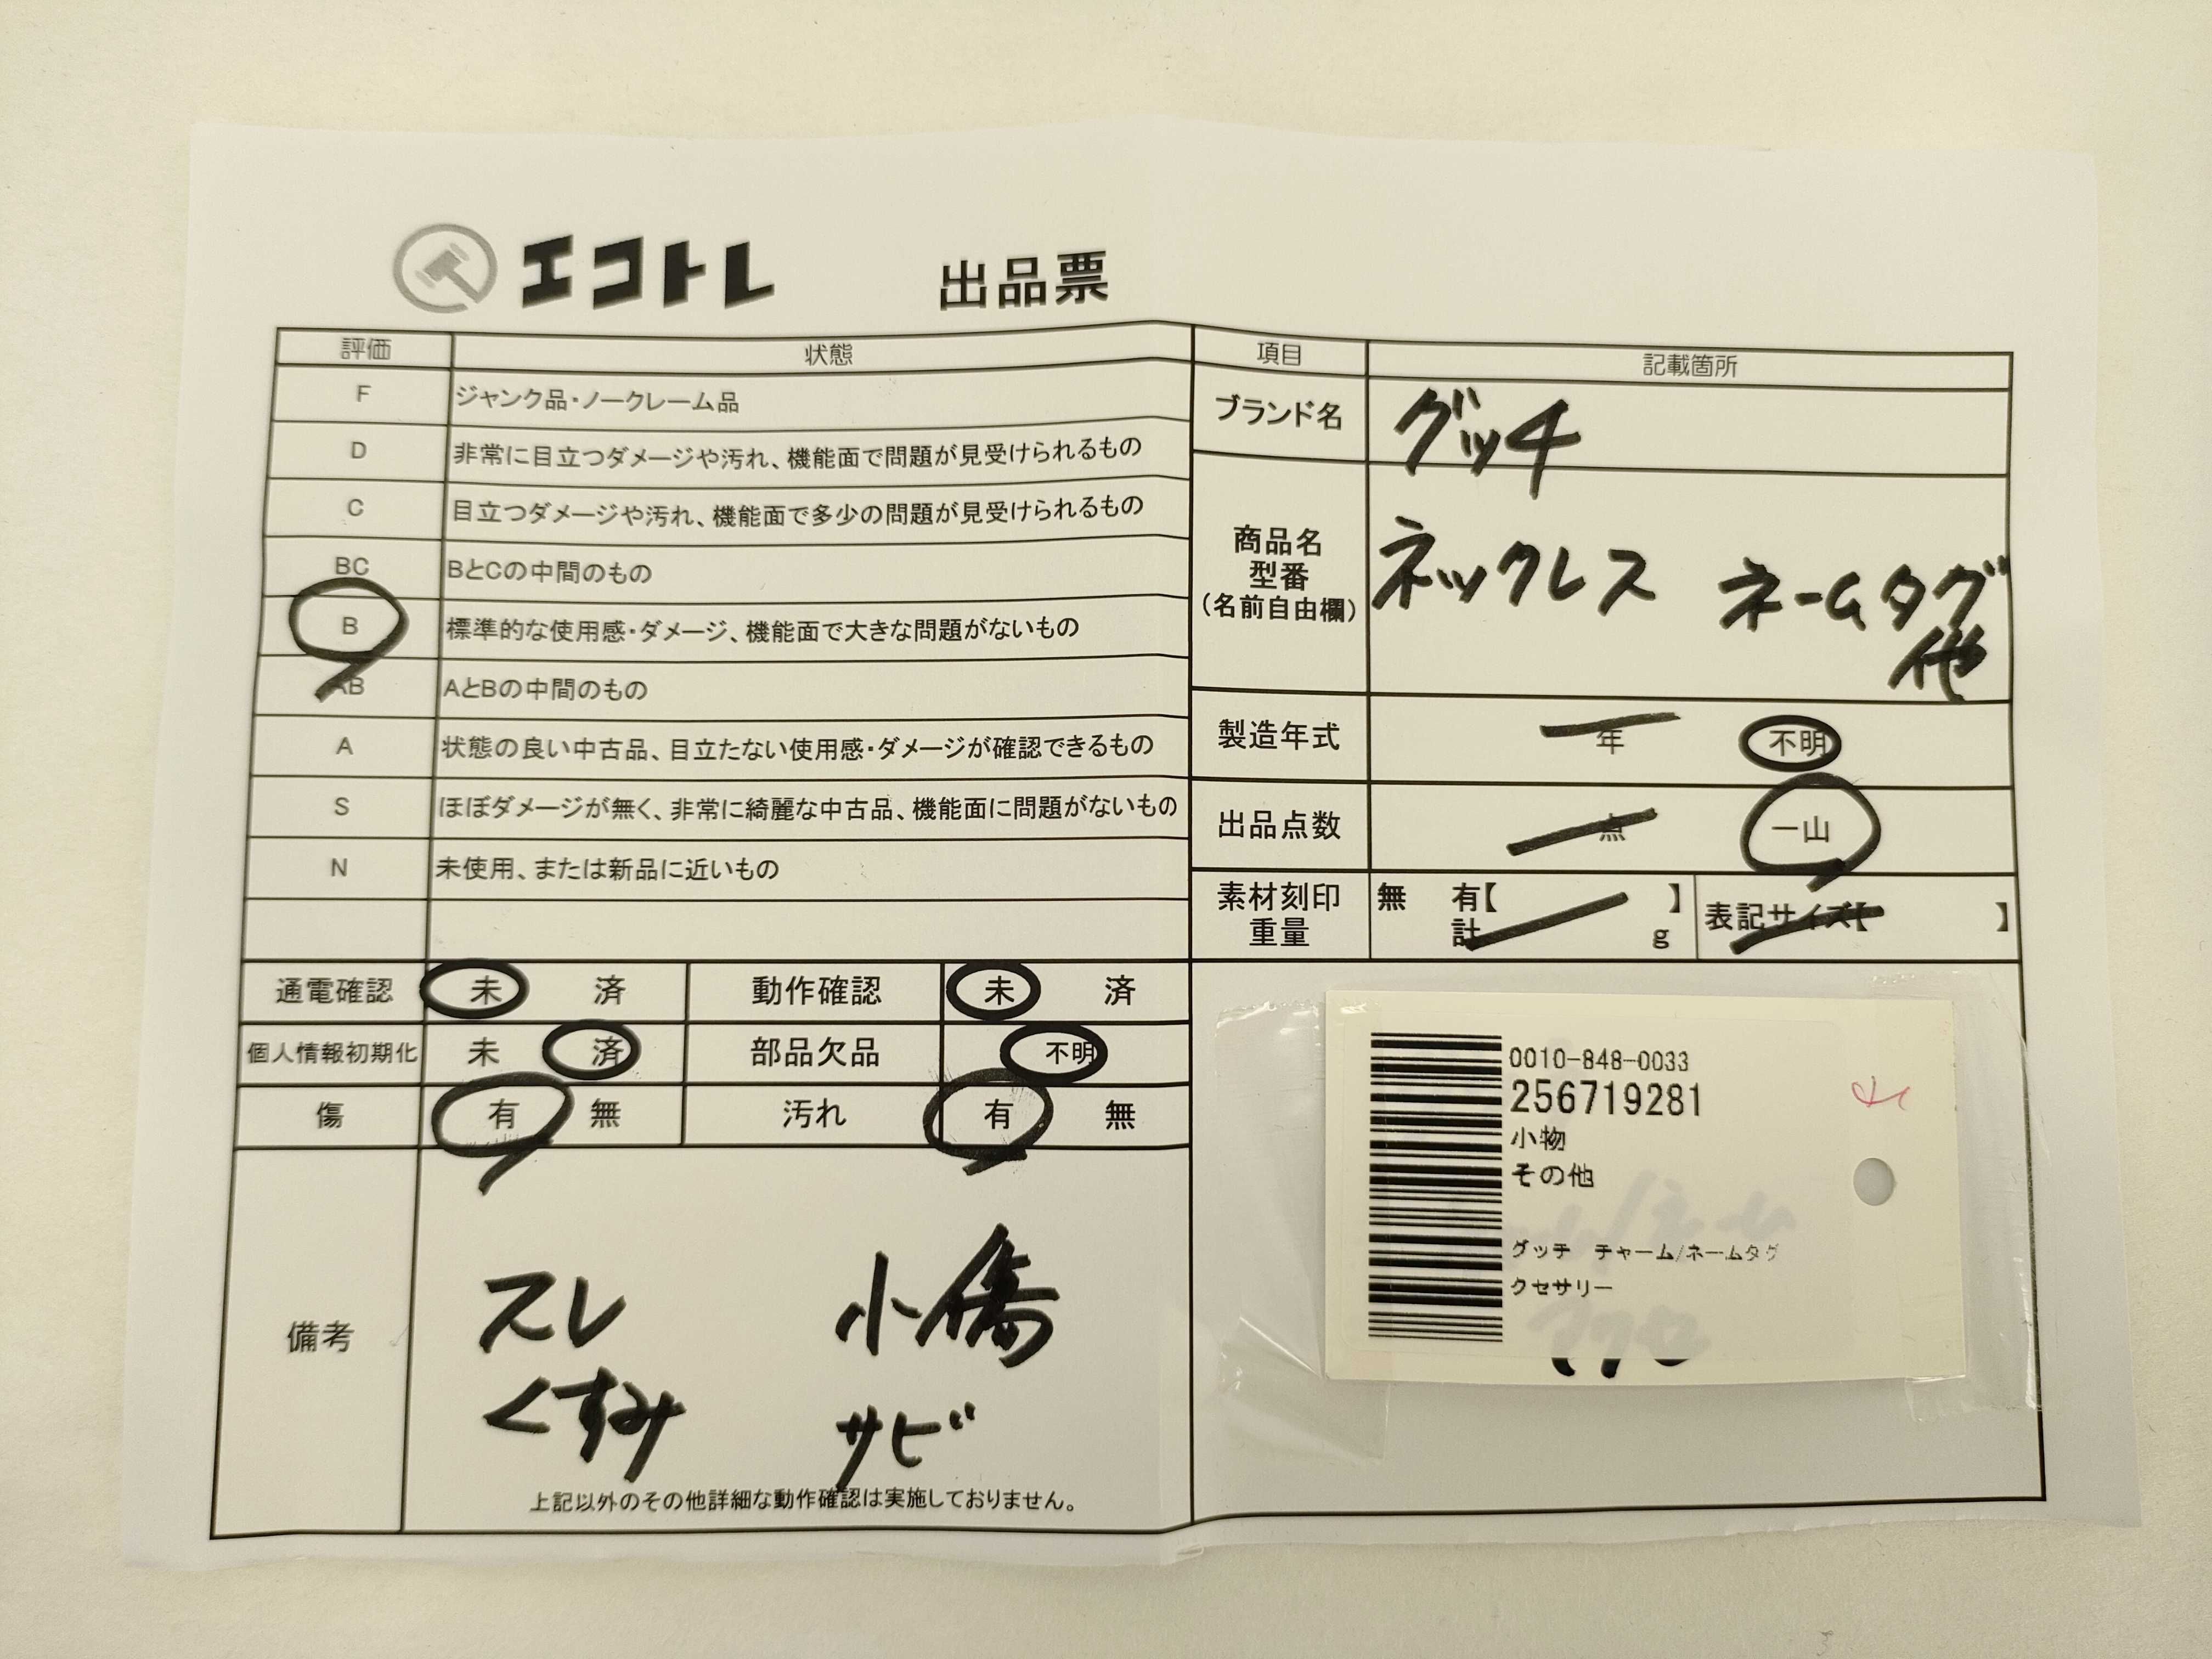 エコトレ 出品票
評価 状態
F ジャンク品・ノークレーム品
D 非常に目立つダメージや汚れ、機能面で問題が見受けられるもの
C 目立つダメージや汚れ、機能面で多少の問題が見受けられるもの
BC BとCの中間のもの
B 標準的な使用感・ダメージ、機能面で大きな問題がないもの
AB AとBの中間のもの
A 状態の良い中古品、目立たない使用感・ダメージが確認できるもの
S ほぼダメージが無く、非常に綺麗な中古品、機能面に問題がないもの
N 未使用、または新品に近いもの
通電確認 未 済 動作確認 未 済
個人情報初期化 未 済 部品欠品 不明
傷 有 無 汚れ 有 無
備考
スレ 小傷
くすみ サビ
上記以外のその他詳細な動作確認は実施しておりません。
項目 記載箇所
ブランド名 グッチ
商品名
型番
(名前自由欄)
ネックレス ネームタグ
他
製造年式 年 不明
出品点数 点 一山
素材刻印 無 有【 】
重量 計 g
表記サイズ【 】
0010-848-0033
256719281
小物
その他
グッチ チャーム/ネームタグ
クセサリー